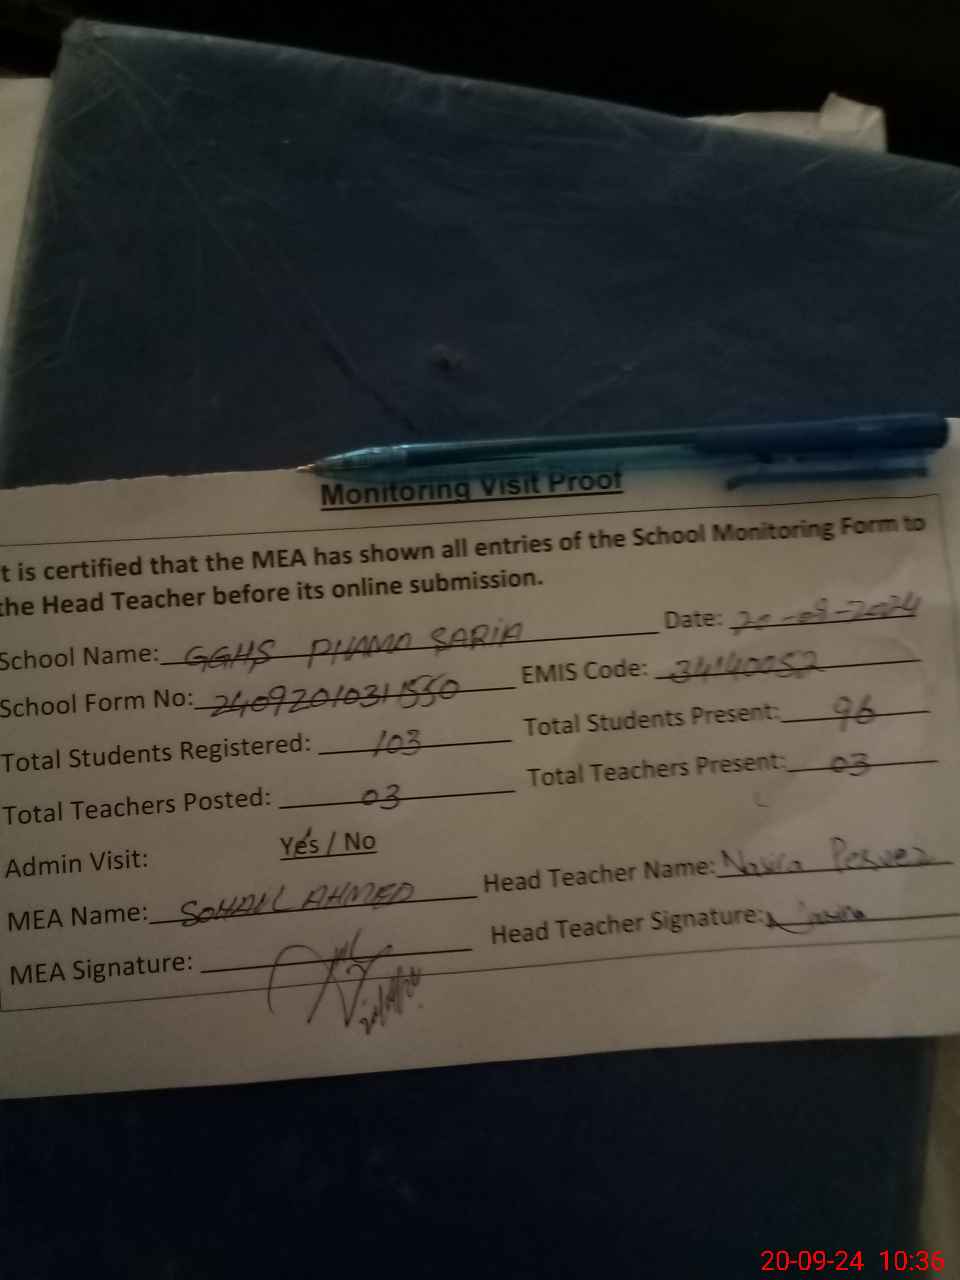 Monitoring Visit Proof
t is certified that the MEA has shown all entries of the School Monitoring Form to
the Head Teacher before its online submission.
School Name: GGHS PHAMA SARIA Date: 20-09-2024
School Form No: 24092010311550 EMIS Code: 34140052
Total Students Registered: 103 Total Students Present: 96
Total Teachers Posted: 03 Total Teachers Present: 03
Admin Visit: Yes / No
MEA Name: SOHAIL AHMED Head Teacher Name: Nasira Pervez
MEA Signature: Head Teacher Signature: Nasira
20-09-24 10:36